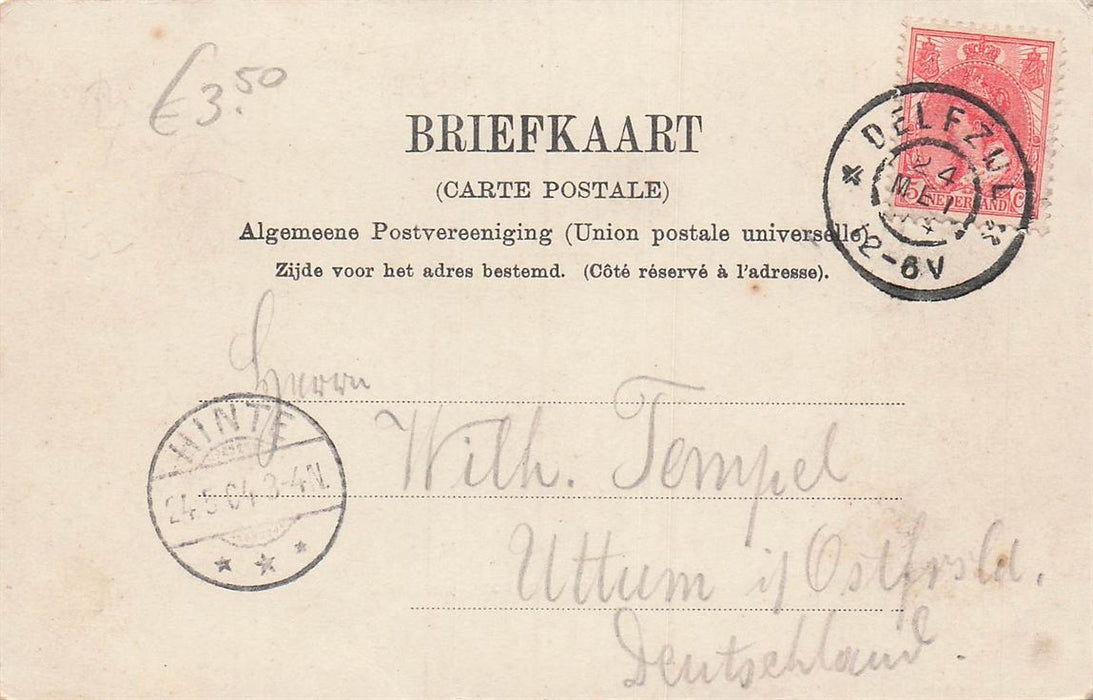 €3.50
BRIEFKAART
(CARTE POSTALE)
Algemeene Postvereeniging (Union postale universelle)
Zijde voor het adres bestemd. (Côté réservé à l'adresse).
5 NEDERLAND C
DELFZIJL
24
MEI
4
12-6V
Herrn
Wilh. Tempel
Uttum i/ Ostfrsld.
Deutschland.
HINTE
24.5.04.3-4N.